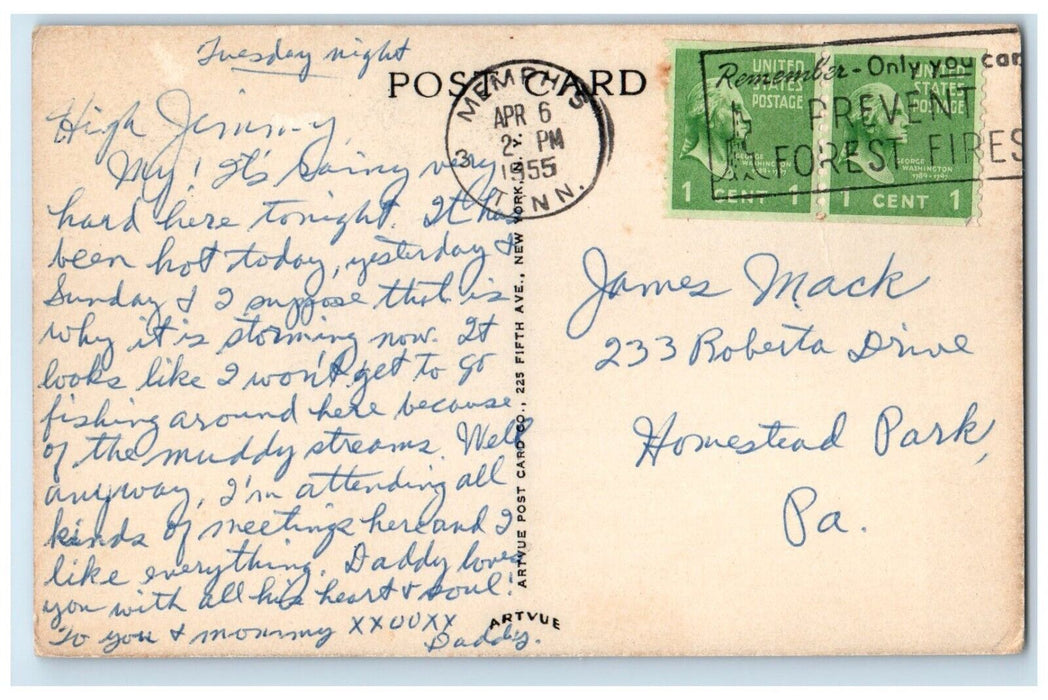 Tuesday night
POST CARD
High Jimmy,
My! It's raining very
hard here tonight. It has
been hot today, yesterday &
Sunday & I suppose that is
why it is storming now. It
looks like I won't get to go
fishing around here because
of the muddy streams. Well
anyway, I'm attending all
kinds of meetings here and I
like everything. Daddy loves
you with all his heart & soul!
To you & mommy XXOOXX
Daddy.
MEMPHIS
APR 6
2 PM
1955
3
TENN.
ARTVUE POST CARD CO., 225 FIFTH AVE., NEW YORK, N.Y.
ARTVUE
Remember - Only you can
PREVENT
FOREST FIRES
UNITED
STATES
POSTAGE
GEORGE
WASHINGTON
1789-1797
1 CENT 1
UNITED
STATES
POSTAGE
GEORGE
WASHINGTON
1789-1797
1 CENT 1
James Mack
233 Roberta Drive
Homestead Park,
Pa.